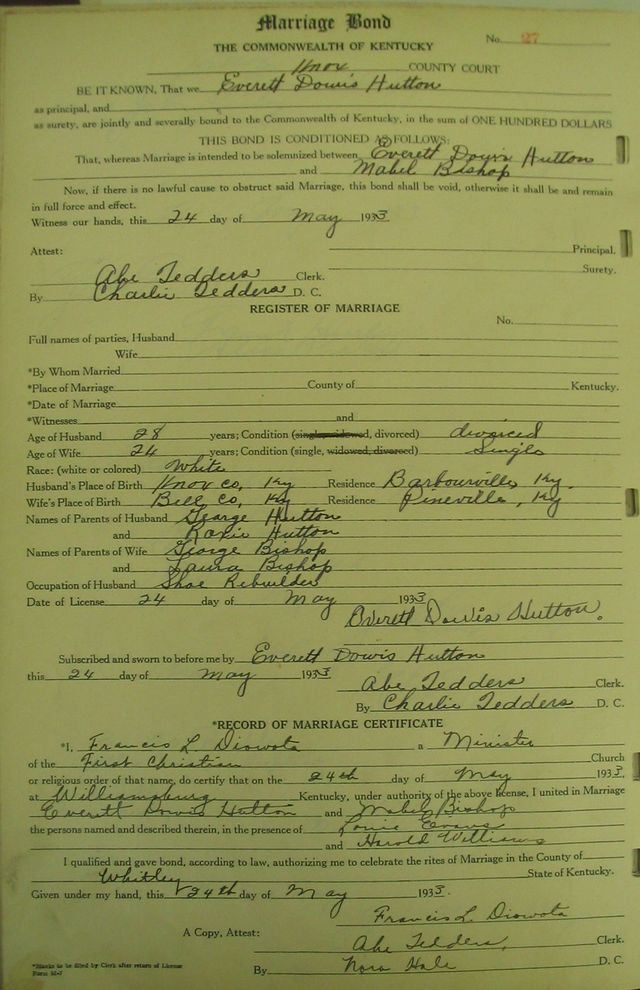 Marriage Bond
No. 27
THE COMMONWEALTH OF KENTUCKY
Knox COUNTY COURT
BE IT KNOWN, That we Everett Dowis Hutton
as principal, and
as surety, are jointly and severally bound to the Commonwealth of Kentucky, in the sum of ONE HUNDRED DOLLARS
THIS BOND IS CONDITIONED AS FOLLOWS:
That, whereas Marriage is intended to be solemnized between Everett Dowis Hutton
and Mabel Bishop
Now, if there is no lawful cause to obstruct said Marriage, this bond shall be void, otherwise it shall be and remain
in full force and effect.
Witness our hands, this 24 day of May 1933
Attest: Principal.
Abe Tedders Clerk. Surety.
By Charlie Tedders D. C.
REGISTER OF MARRIAGE
No.
Full names of parties, Husband
Wife
*By Whom Married
*Place of Marriage County of Kentucky.
*Date of Marriage
*Witnesses and
Age of Husband 28 years; Condition (single, widowed, divorced) divorced
Age of Wife 24 years; Condition (single, widowed, divorced) Single
Race: (white or colored) White
Husband's Place of Birth Knox Co, Ky Residence Barbourville Ky.
Wife's Place of Birth Bell Co, Ky Residence Pineville, Ky
Names of Parents of Husband George Hutton
and Roxie Hutton
Names of Parents of Wife George Bishop
and Laura Bishop
Occupation of Husband Shoe Rebuilder
Date of License 24 day of May 1933
Everett Dowis Hutton.
Subscribed and sworn to before me by Everett Dowis Hutton
this 24 day of May 1933
Abe Tedders Clerk.
By Charlie Tedders D. C.
*RECORD OF MARRIAGE CERTIFICATE
*I, Francis L. a Minister
of the First Christian Church
or religious order of that name, do certify that on the 24th day of May 1933.
at Williamsburg Kentucky, under authority of the above license, I united in Marriage
Everett Dowis Hutton and Mabel Bishop
the persons named and described therein, in the presence of Evans
and Harold Williams
I qualified and gave bond, according to law, authorizing me to celebrate the rites of Marriage in the County of
Whitley State of Kentucky.
Given under my hand, this 24th day of May 1933.
Francis L.
A Copy, Attest: Abe Tedders, Clerk.
By Nora Hale D. C.
*Blanks to be filled by Clerk after return of License